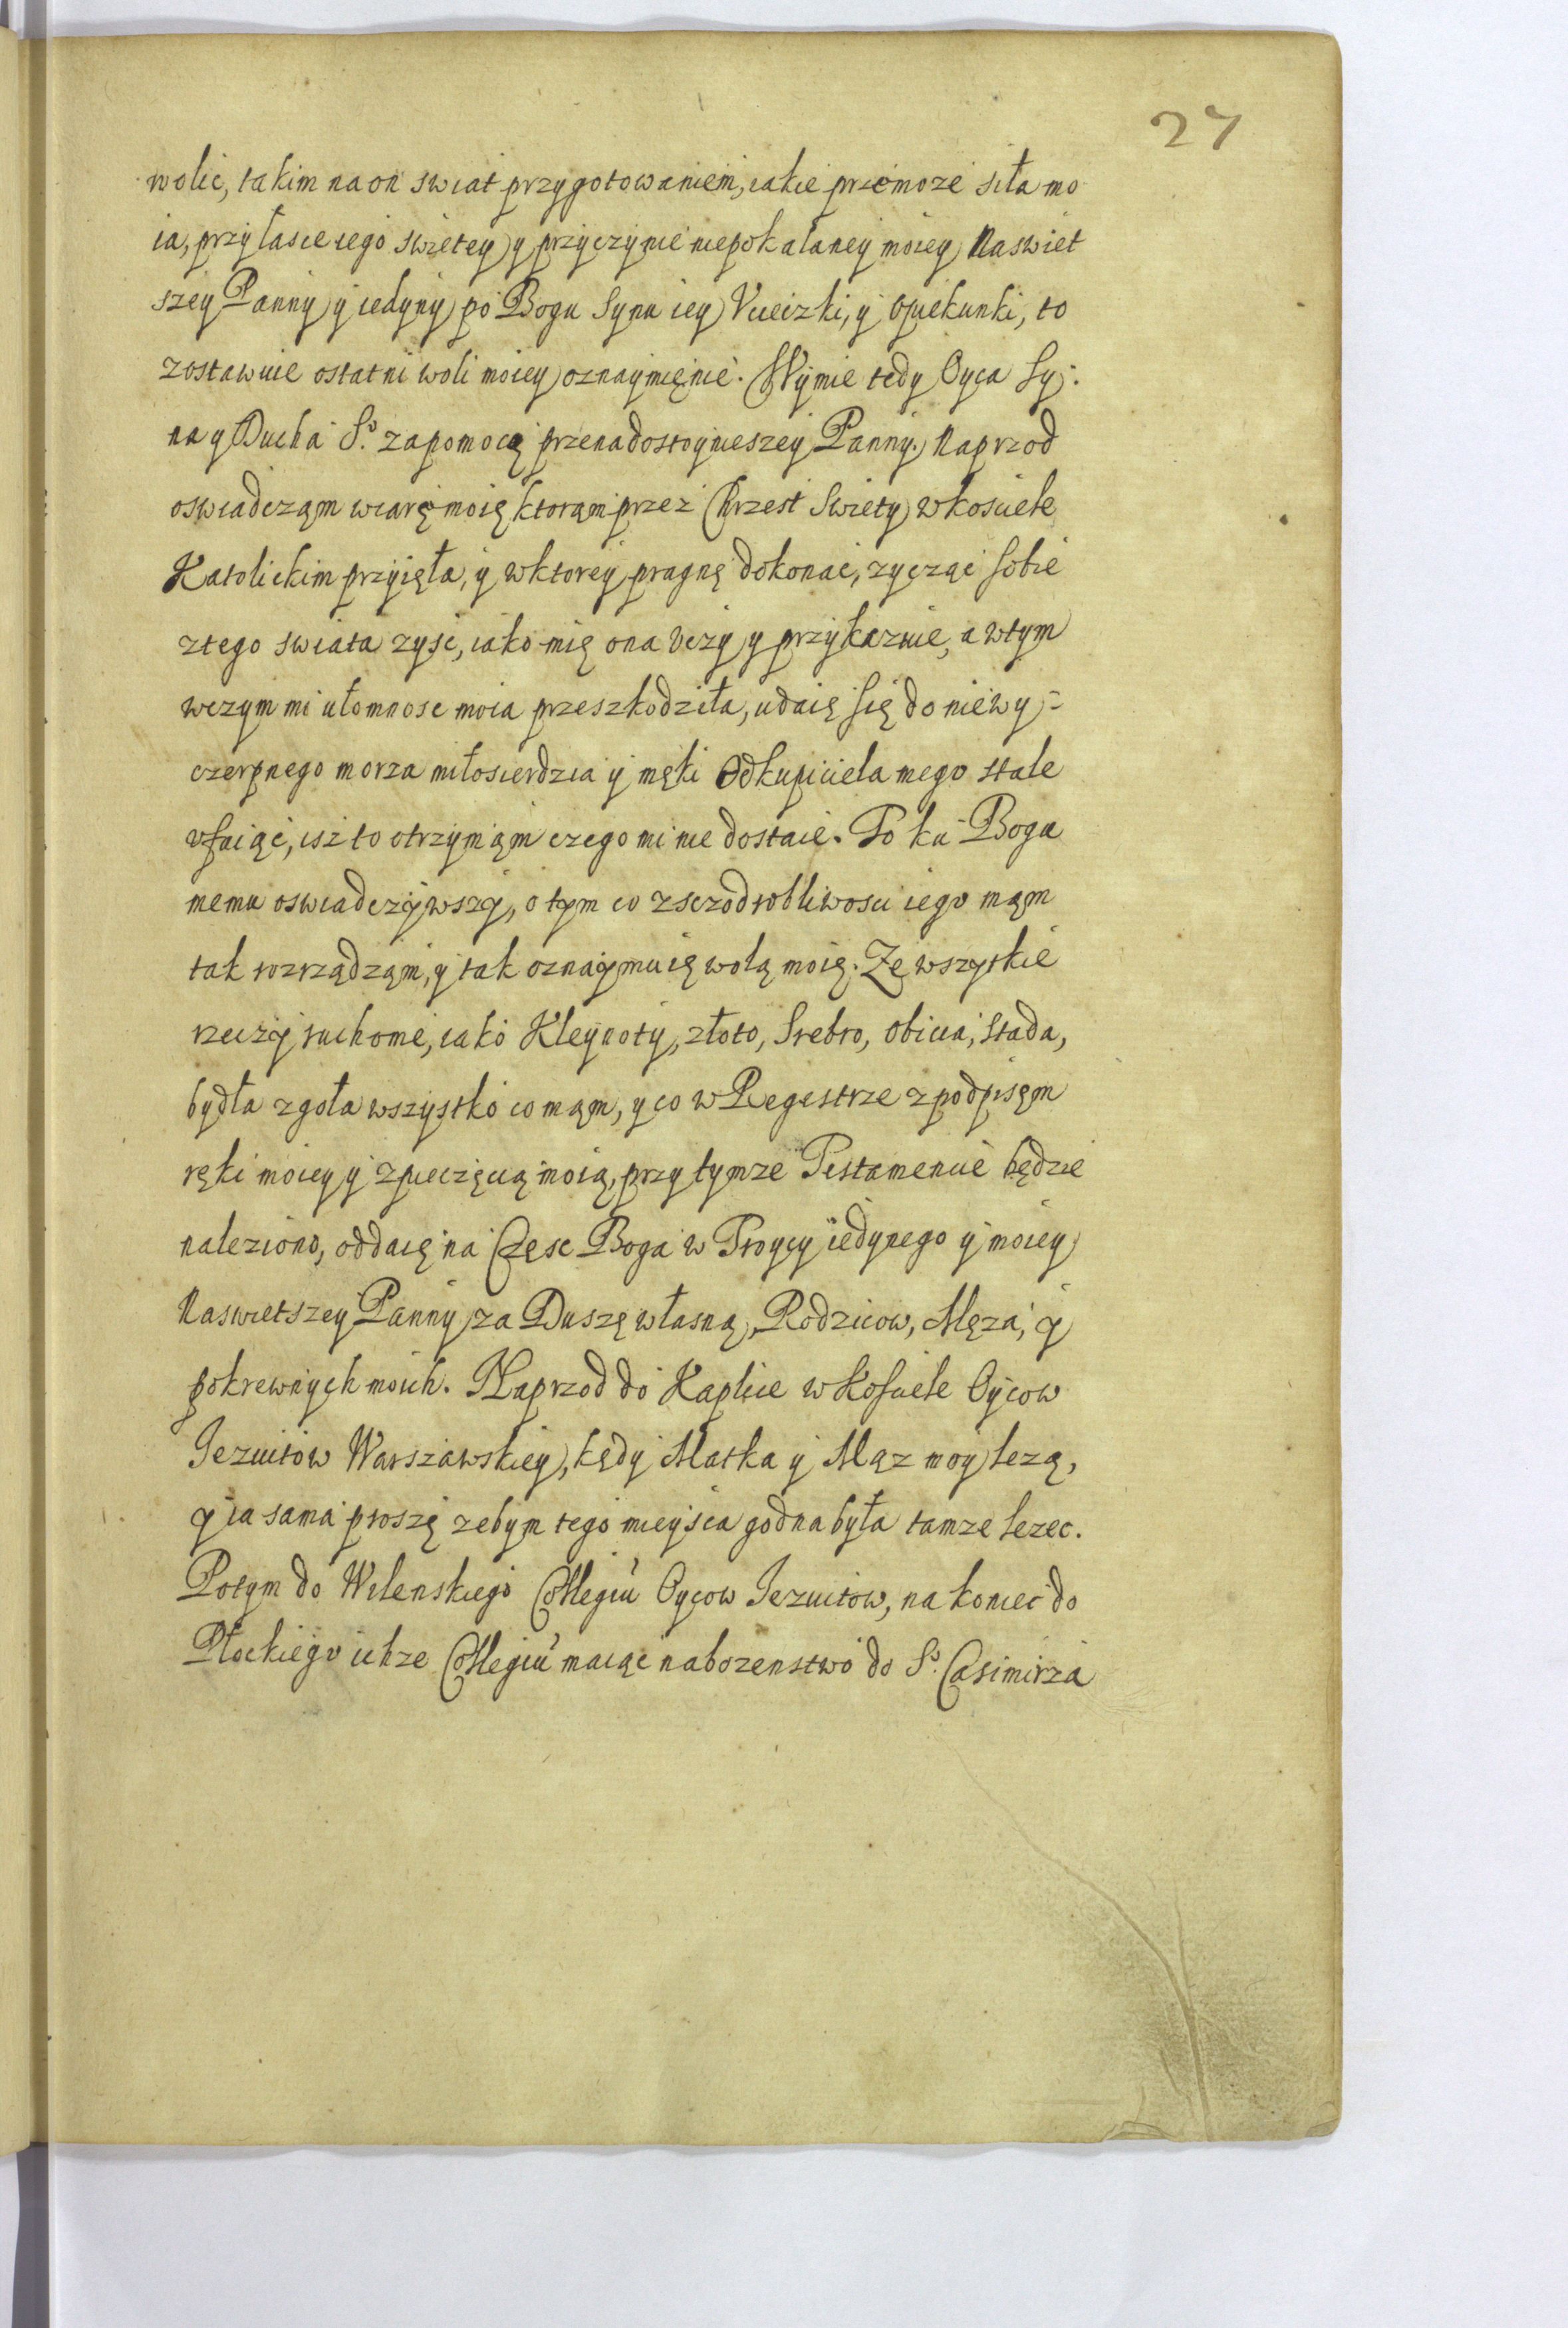 27
wolic, takim na on swiat przygotowaniem, iakie przemoze siła mo
ia, przy łasce iego swietey y przyczynie niepokalaney moiey Naswiet
szey Panny y iedyny po Bogu Synu iey Vcieczki, y Opiekunki, to
zostawuie ostatni woli moiey oznaymięnie. Wymie tedy Oyca Sy:
na y Ducha S.º zapomocą przenadostoynieszey Panny. Naprzod
oswiadcząm wiarę moię ktorąm przez Chrzest Swiety w kosciele
Katolickim przyięła, y wktorey pragnę dokonac, zycząc sobie
ztego swiata zysc, iako mię ona Vczy y przykazuie, a wtym
wczym mi ułomnosc moia przeszkodziła, udaię się do niewy=
czerpnego morza miłosierdzia y męki Odkupiciela mego stale
vfaiąc, isz to otrzymąm czego mi nie dostaie. To ku Bogu
memu oswiadczywszy, o tym co zsczodrobliwosci iego mąm
tak rozrządząm, y tak oznaymuię wolą moię. Ze wszystkie
rzeczy ruchome, iako Kleynoty, złoto, Srebro, obicia, Stada,
bydła zgoła wszystko co mąm, y co w Regestrze z podpisęm
ręki moiey y zpieczęcią moią, przy tymze Testamencie będzie
naleziono, oddaię na Częsc Boga w Troycy iedynego y moiey
Naswietszey Panny za Duszę własną, Rodzicow, Męza, y
pokrewnych moich. Naprzod do Kaplice w Kosciele Oycow
Jezuitow Warszawskiey, kędy Matka y Mąz moy lezą,
y ia sama proszę zebym tego mieysca godna była tamze lezec.
Potym do Wilenskiego Collegiu Oycow Jezuitow, na koniec do
Płockiego ichze Collegiu maiąc nabozenstwo do S.º Casimirza